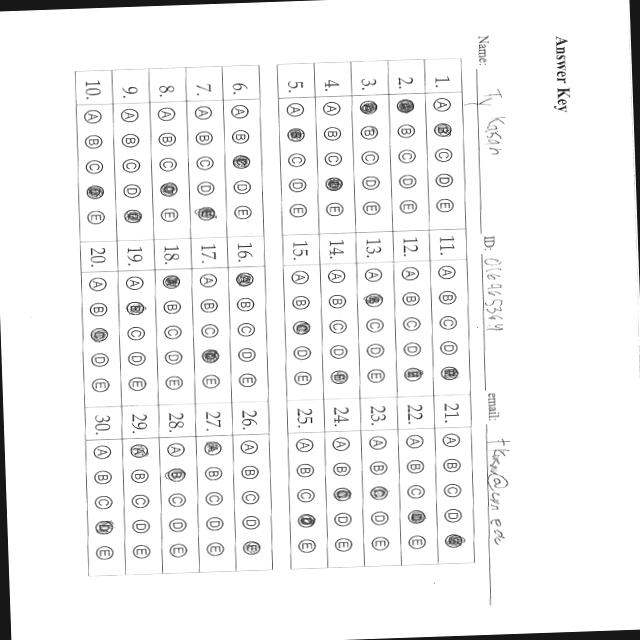 Answer Key
Name: Ty Kasan ID: 016965364 email:
1. A B C D E 11. A B C D E 21. A B C D E
2. A B C D E 12. A B C D E 22. A B C D E
3. A B C D E 13. A B C D E 23. A B C D E
4. A B C D E 14. A B C D E 24. A B C D E
5. A B C D E 15. A B C D E 25. A B C D E
6. A B C D E 16. A B C D E 26. A B C D E
7. A B C D E 17. A B C D E 27. A B C D E
8. A B C D E 18. A B C D E 28. A B C D E
9. A B C D E 19. A B C D E 29. A B C D E
10. A B C D E 20. A B C D E 30. A B C D E